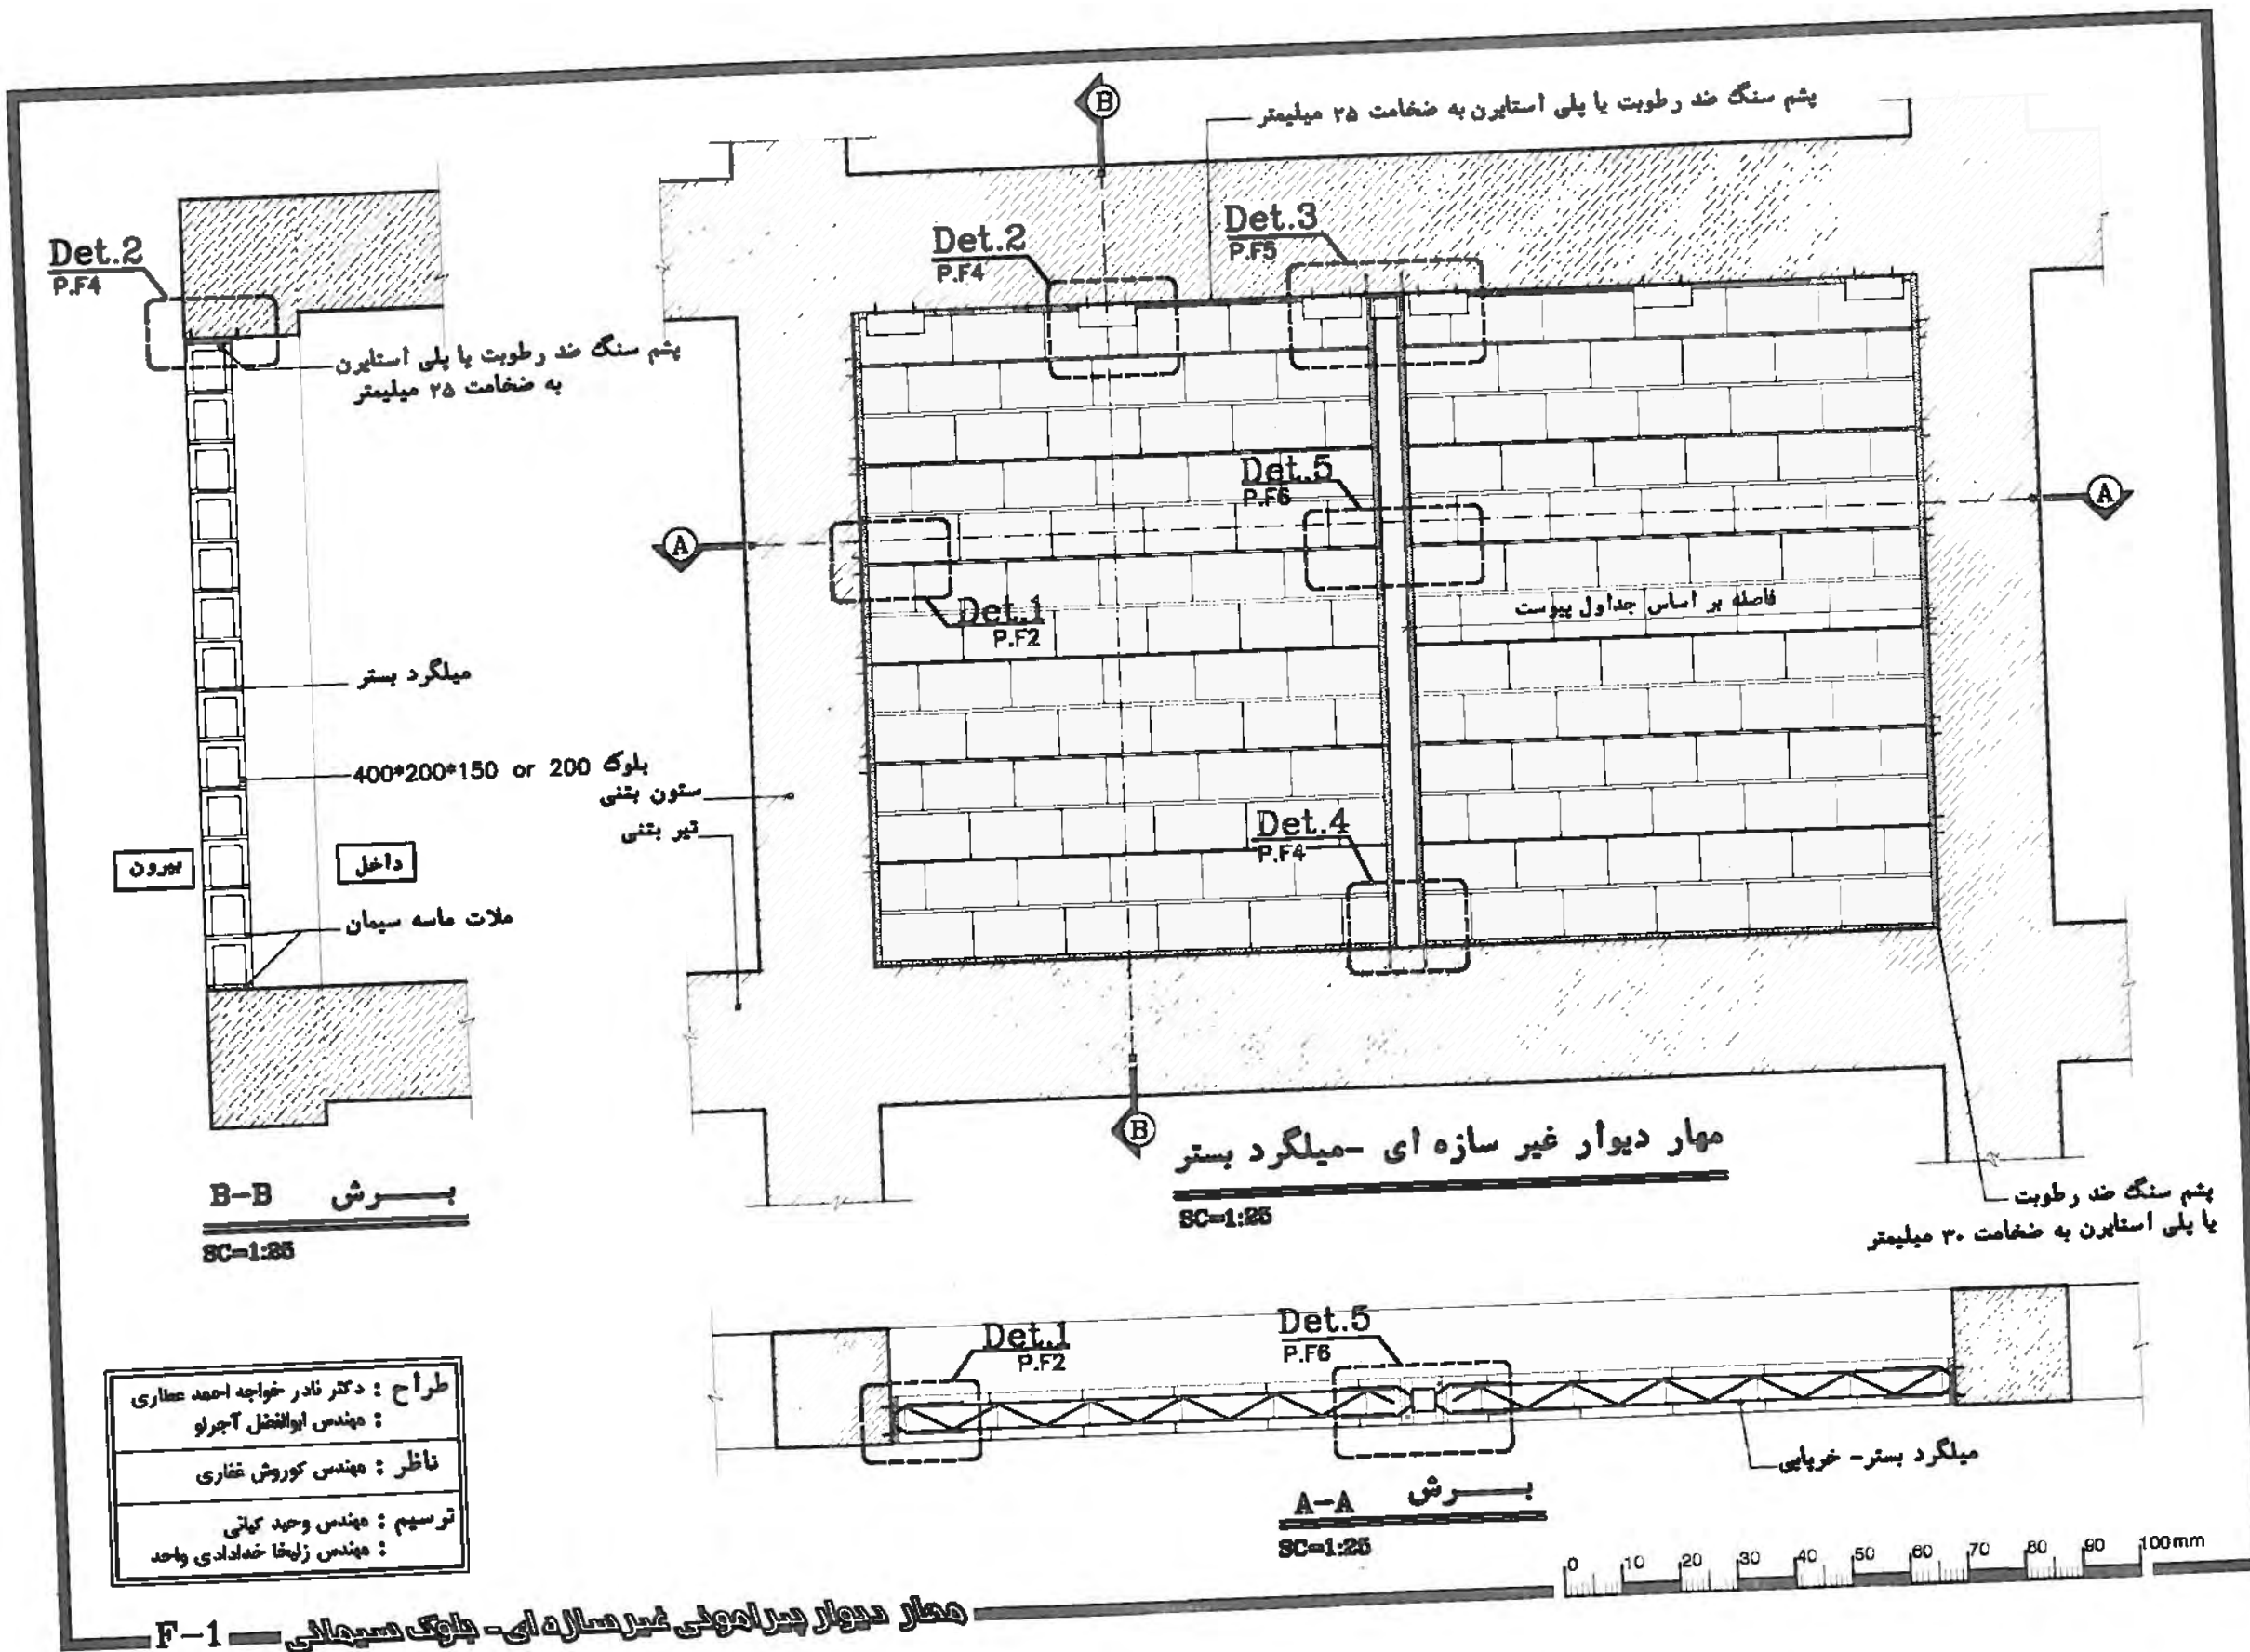 B
پشم سنگ ضد رطوبت یا پلی استایرن به ضخامت ۲۵ میلیمتر
Det.2
P.F4
Det.2
P.F4
Det.3
P.F5
پشم سنگ ضد رطوبت یا پلی استایرن
به ضخامت ۲۵ میلیمتر
Det.5
P.F6
A
A
Det.1
P.F2
فاصله بر اساس جداول پیوست
میلگرد بستر
بلوک 400*200*150 or 200
ستون بتنی
تیر بتنی
Det.4
P.F4
بیرون
داخل
ملات ماسه سیمان
B
مهار دیوار غیر سازه ای -میلگرد بستر
SC=1:25
برش B-B
SC=1:25
پشم سنگ ضد رطوبت
یا پلی استایرن به ضخامت ۳۰ میلیمتر
Det.1
P.F2
Det.5
P.F6
میلگرد بستر- خرپایی
برش A-A
SC=1:25
طراح : دکتر نادر خواجه احمد عطاری
: مهندس ابوالفضل آجرلو
ناظر : مهندس کوروش غفاری
ترسیم : مهندس وحید کیانی
: مهندس زلیخا خدادادی واحد
0 10 20 30 40 50 60 70 80 90 100mm
F-1 مهار دیوار پیرامونی غیرسازه ای- بلوک سیمانی